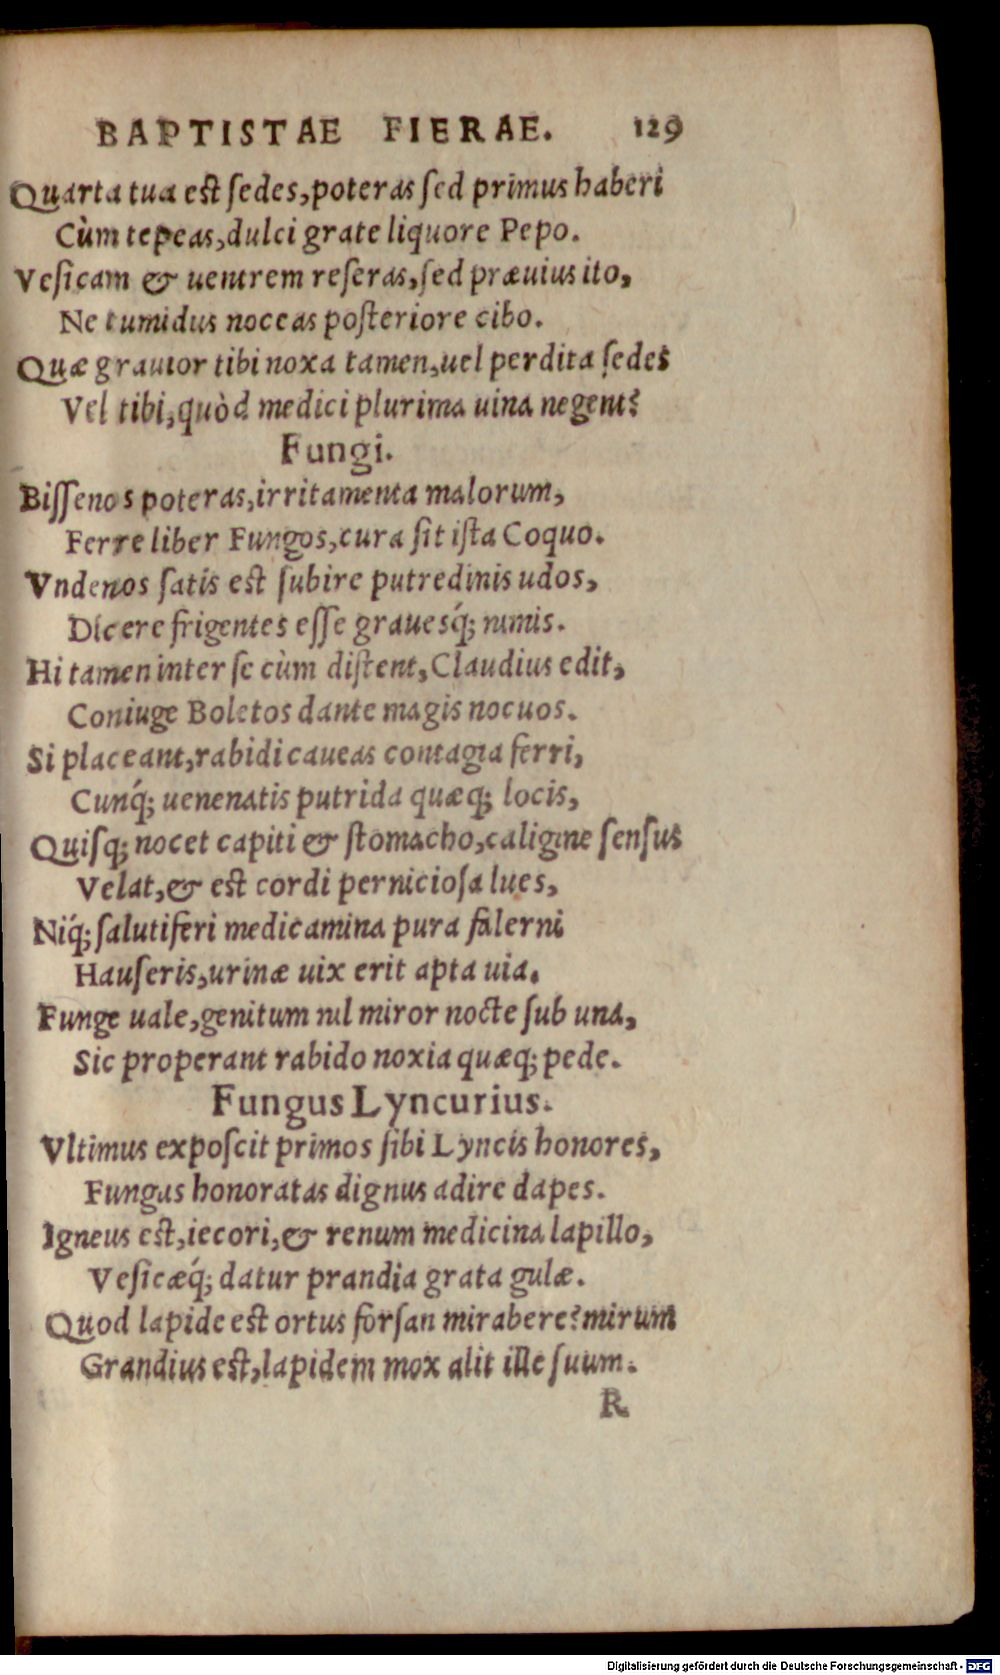 BAPTISTAE FIERAE. 129
Quarta tua est ſedes, poteras ſed primus haberi
Cùm tepeas, dulci grate liquore Pepo.
Veſicam & uentrem reſeras, ſed præuius ito,
Ne tumidus noceas poſteriore cibo.
Quæ grauior tibi noxa tamen, uel perdita ſedes
Vel tibi, quòd medici plurima uina negent?
Fungi.
Biſſenos poteras, irritamenta malorum,
Ferre liber Fungos, cura ſit iſta Coquo.
Vndenos ſatis est ſubire putredinis udos,
Dicere frigentes eſſe grauesq́; nimis.
Hi tamen inter ſe cùm diſtent, Claudius edit,
Coniuge Boletos dante magis nocuos.
Si placeant, rabidi caueas contagia ferri,
Cunq́; uenenatis putrida quæq; locis,
Quiſq; nocet capiti & ſtomacho, caligine ſenſus
Velat, & est cordi pernicioſa lues,
Niq́; ſalutiferi medicamina pura falerni
Hauſeris, urinæ uix erit apta uia.
Funge uale, genitum nil miror nocte ſub una,
Sic properant rabido noxia quæq; pede.
Fungus Lyncurius.
Vltimus expoſcit primos ſibi Lyncis honores,
Fungus honoratas dignus adire dapes.
Igneus est, iecori, & renum medicina lapillo,
Veſicæq́; datur prandia grata gulæ.
Quod lapide est ortus forſan mirabere? mirum
Grandius est, lapidem mox alit ille ſuum.
R
Digitalisierung gefördert durch die Deutsche Forschungsgemeinschaft - DFG